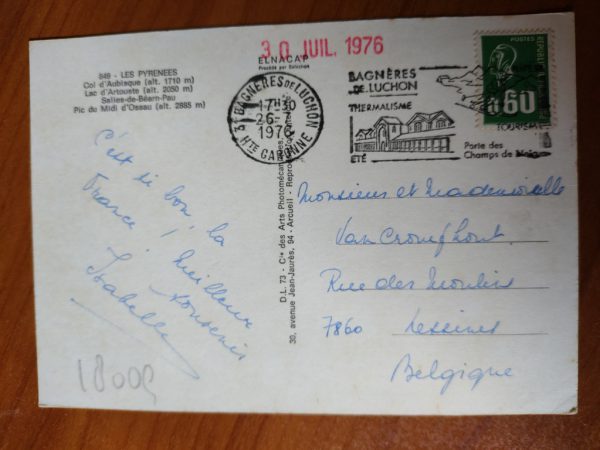 849 - LES PYRENEES
Col d'Aubisque (alt. 1710 m)
Lac d'Artouste (alt. 2050 m)
Salies-de-Béarn-Pau
Pic du Midi d'Ossau (alt. 2885 m)
ELNACAP
30 JUIL. 1976
31 BAGNÈRES DE LUCHON
17H30
26-
1976
HTE GARONNE
BAGNÈRES
DE LUCHON
THERMALISME
ÉTÉ
TOURISME
Porte des
Champs de
POSTES
0.60
C'est si bon, la
France ! Meilleur
souvenir
Isabelle
18009
D.L. 73 - Cie des Arts Photomécaniques
30, avenue Jean-Jaurès, 94 - Arcueil - Reproduction
Monsieur et Mademoiselle
Rue des Moulins
7860 Lessines
Belgique